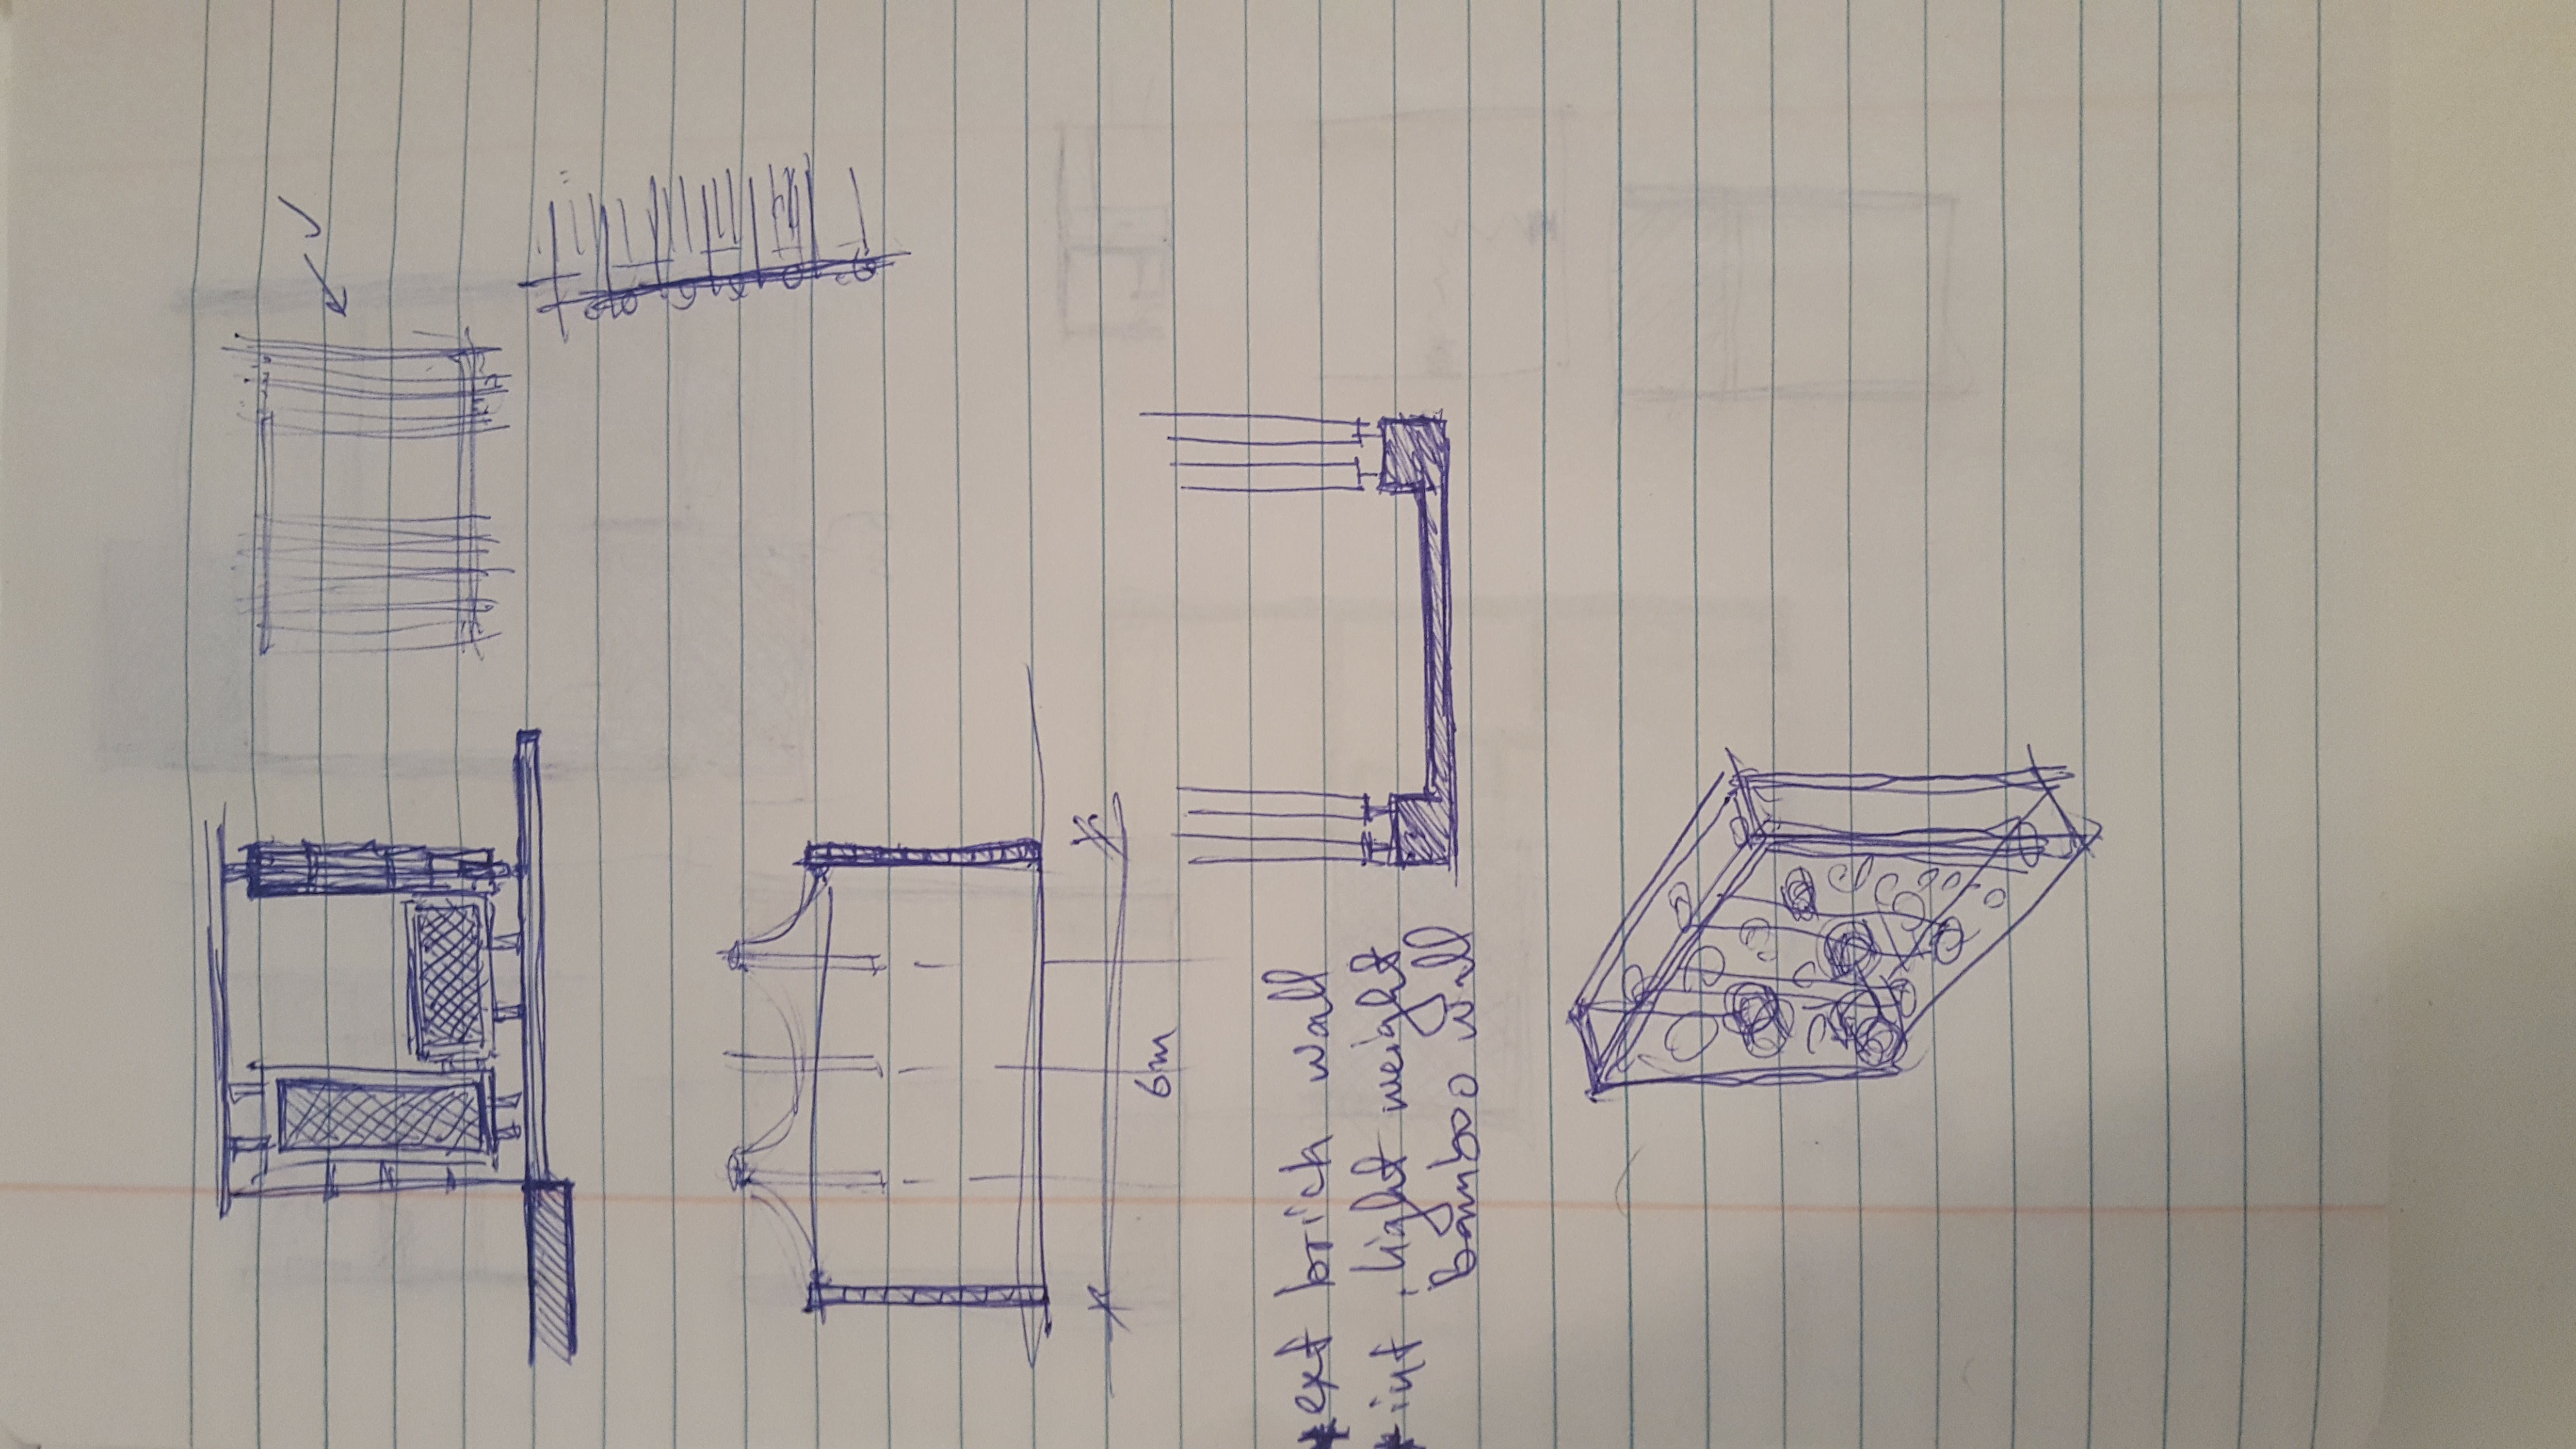 6m
*ext brick wall
*int. light weight
bamboo wall